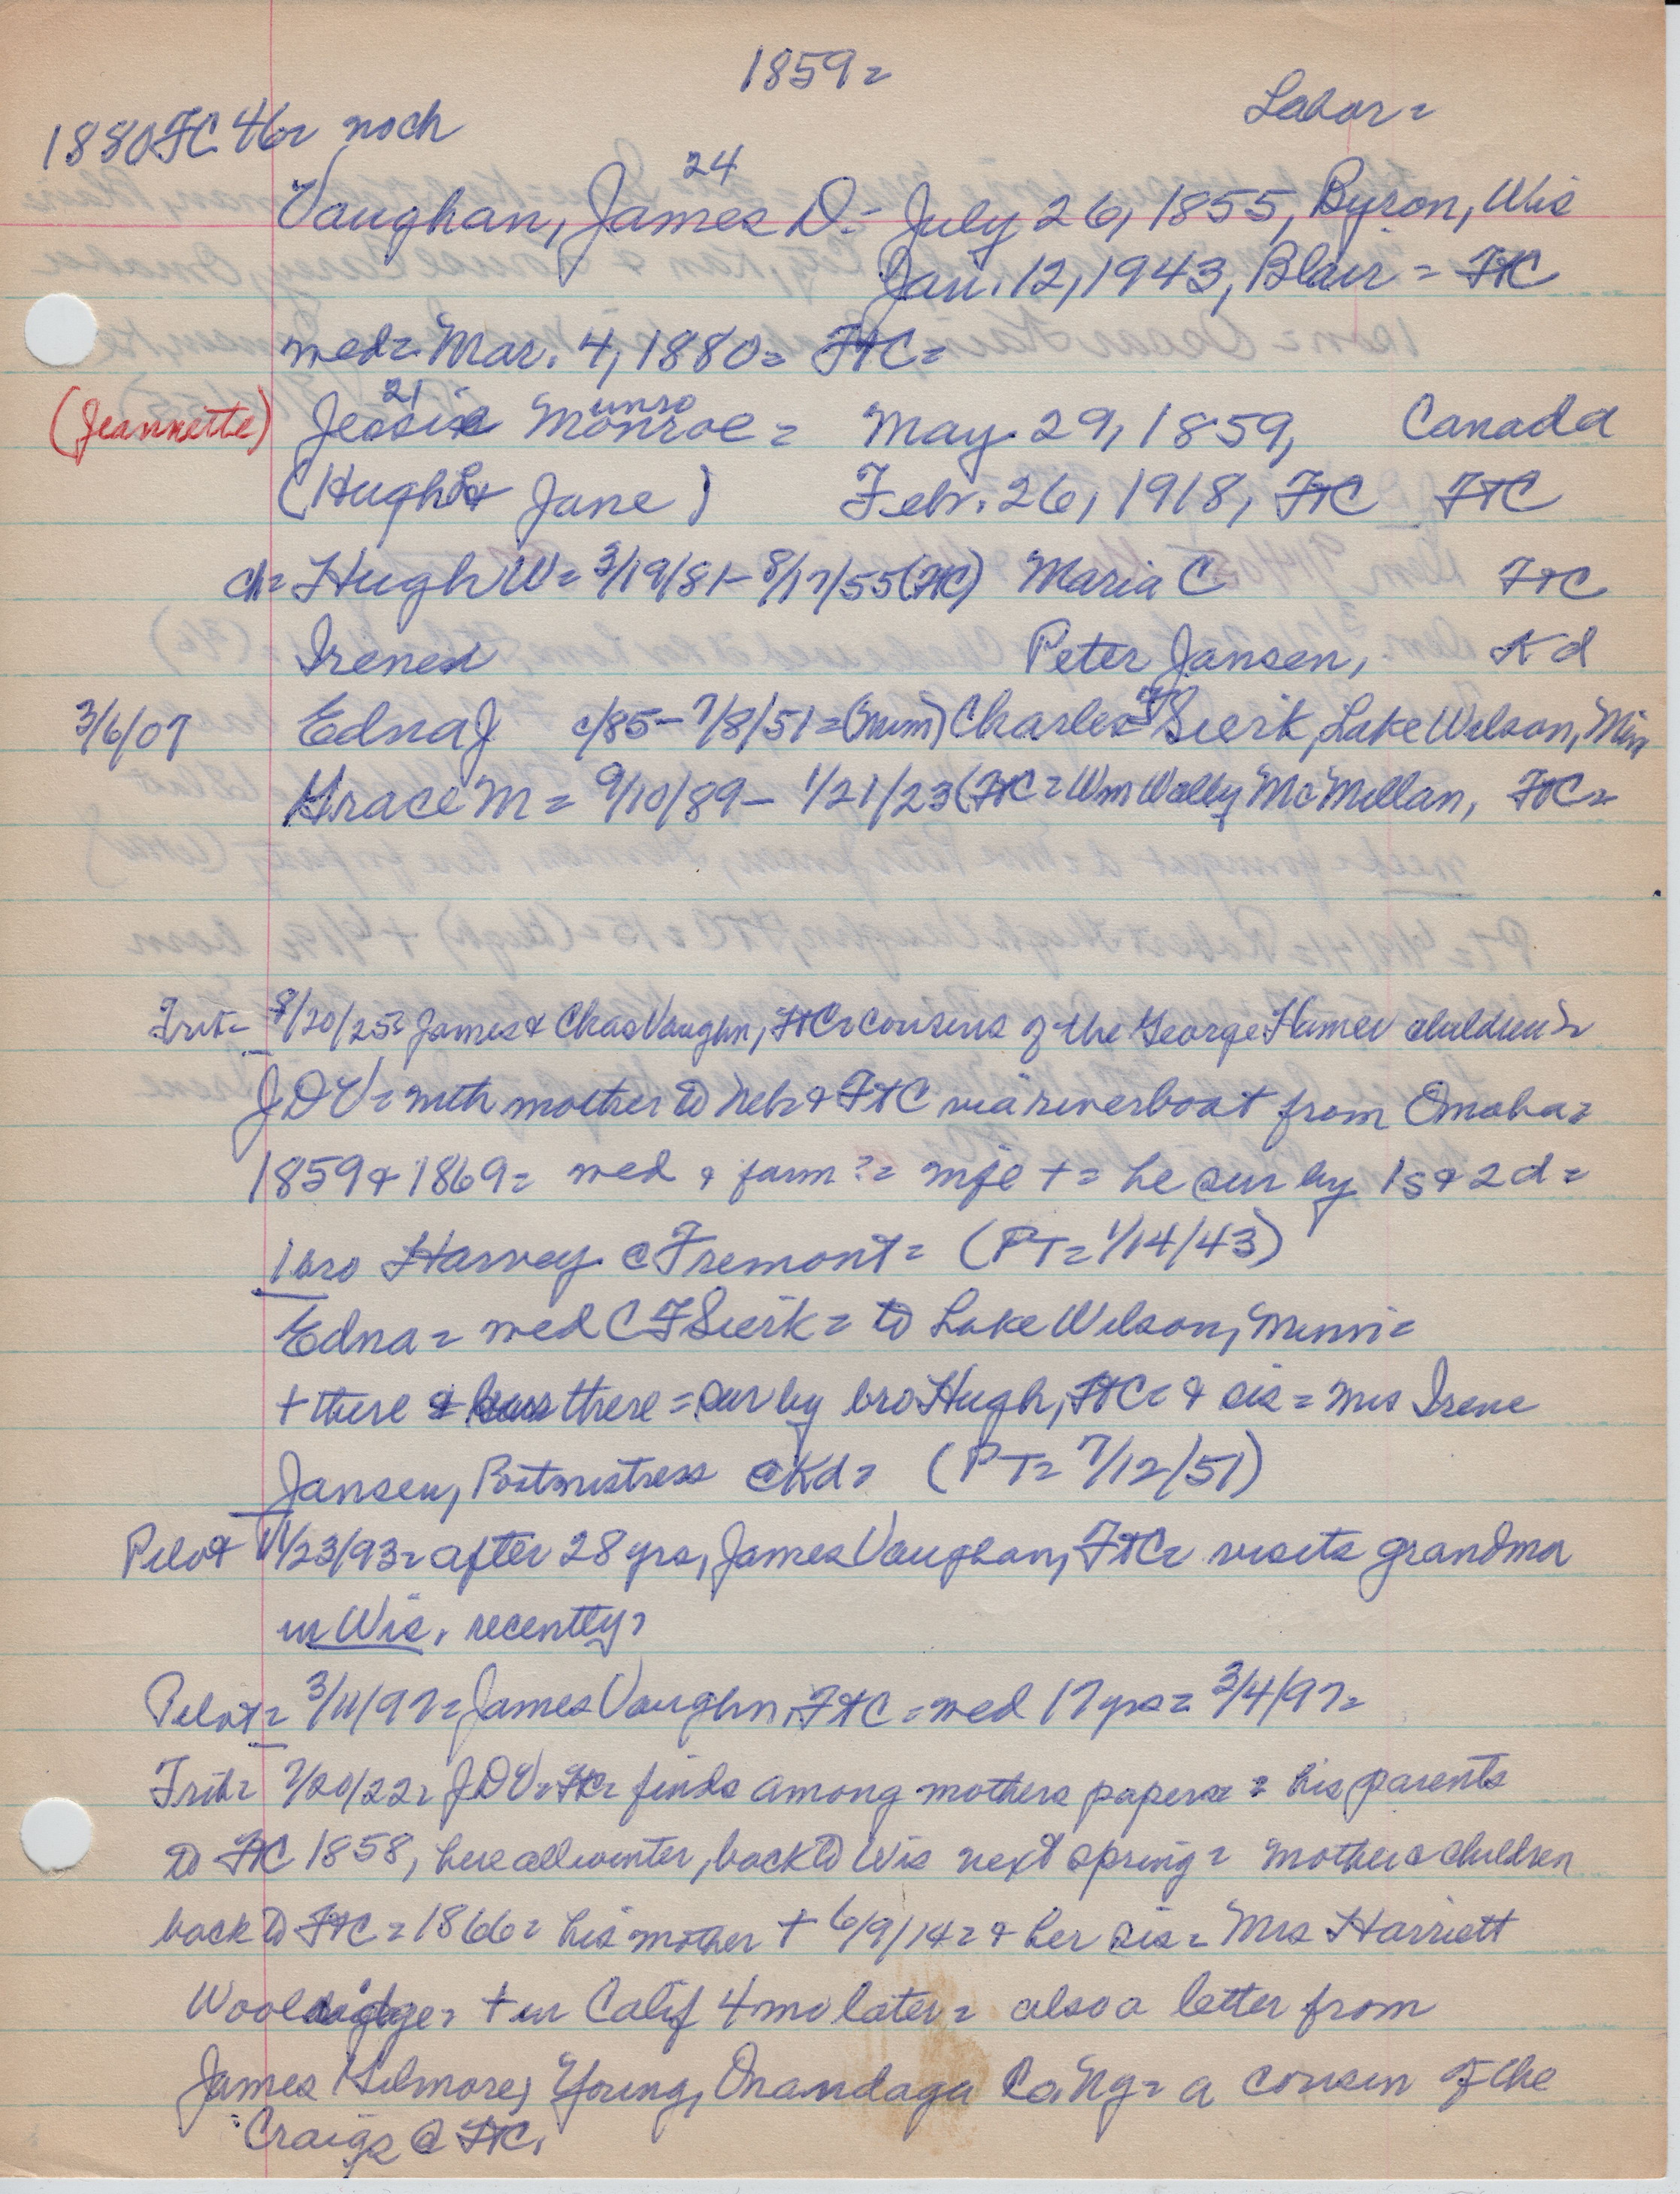 1859=
Labor=
1880 FC 46= noch
24
Vaughan, James D.- July 26, 1855, Byron, Wis
Jan. 12, 1943, Blair = FtC
wed= Mar. 4, 1880= FtC=
(Jeannette) Jessie 21 Monroe unro = May 29, 1859, Canada
(Hugh & Jane) Febr. 26, 1918, FtC FtC
ch= Hugh W= 3/19/81- 8/17/55 (FtC) Maria C FtC
Irene Peter Jansen, Kd
3/6/07 Edna J c/85- 7/8/51= (Minn) Charles F Sierk, Lake Wilson, Minn
Grace M= 9/10/89- 1/21/23 (FtC= Wm Wally McMillan, FtC=
Trib= 8/20/25= James & Chas Vaughn, FtC= cousins of the George Hamer children=
JDV= with mother to Neb & FtC via riverboat from Omaha=
1859 & 1869= wed & farm ?= wife += he sur by 1s & 2d=
1 bro Harvey @ Fremont= (PT= 1/14/43)
Edna= wed C F Sierk= to Lake Wilson, Minn=
+ there & there= sur by bro Hugh, FtC= & sis= Mrs Irene
Jansen, Postmistress @ Kd= (PT= 7/12/51)
Pilot 11/23/93= after 28 yrs, James Vaughan, FtC= visits grandma
in Wis. recently=
Pilot= 3/11/97= James Vaughn, FtC= wed 17 yrs= 3/4/97=
Trib= 7/20/22= JDV= FtC= finds among mothers papers= his parents
to FtC 1858, here all winter, back to Wis next spring= mother & children
back to FtC= 1866= his mother + 6/9/14= & her sis= Mrs Harriett
Wooldridge= + in Calif 4 mo later= also a letter from
James Gilmore, Young, Onandaga Co. Ny= a cousin of the
Craigs @ FtC.